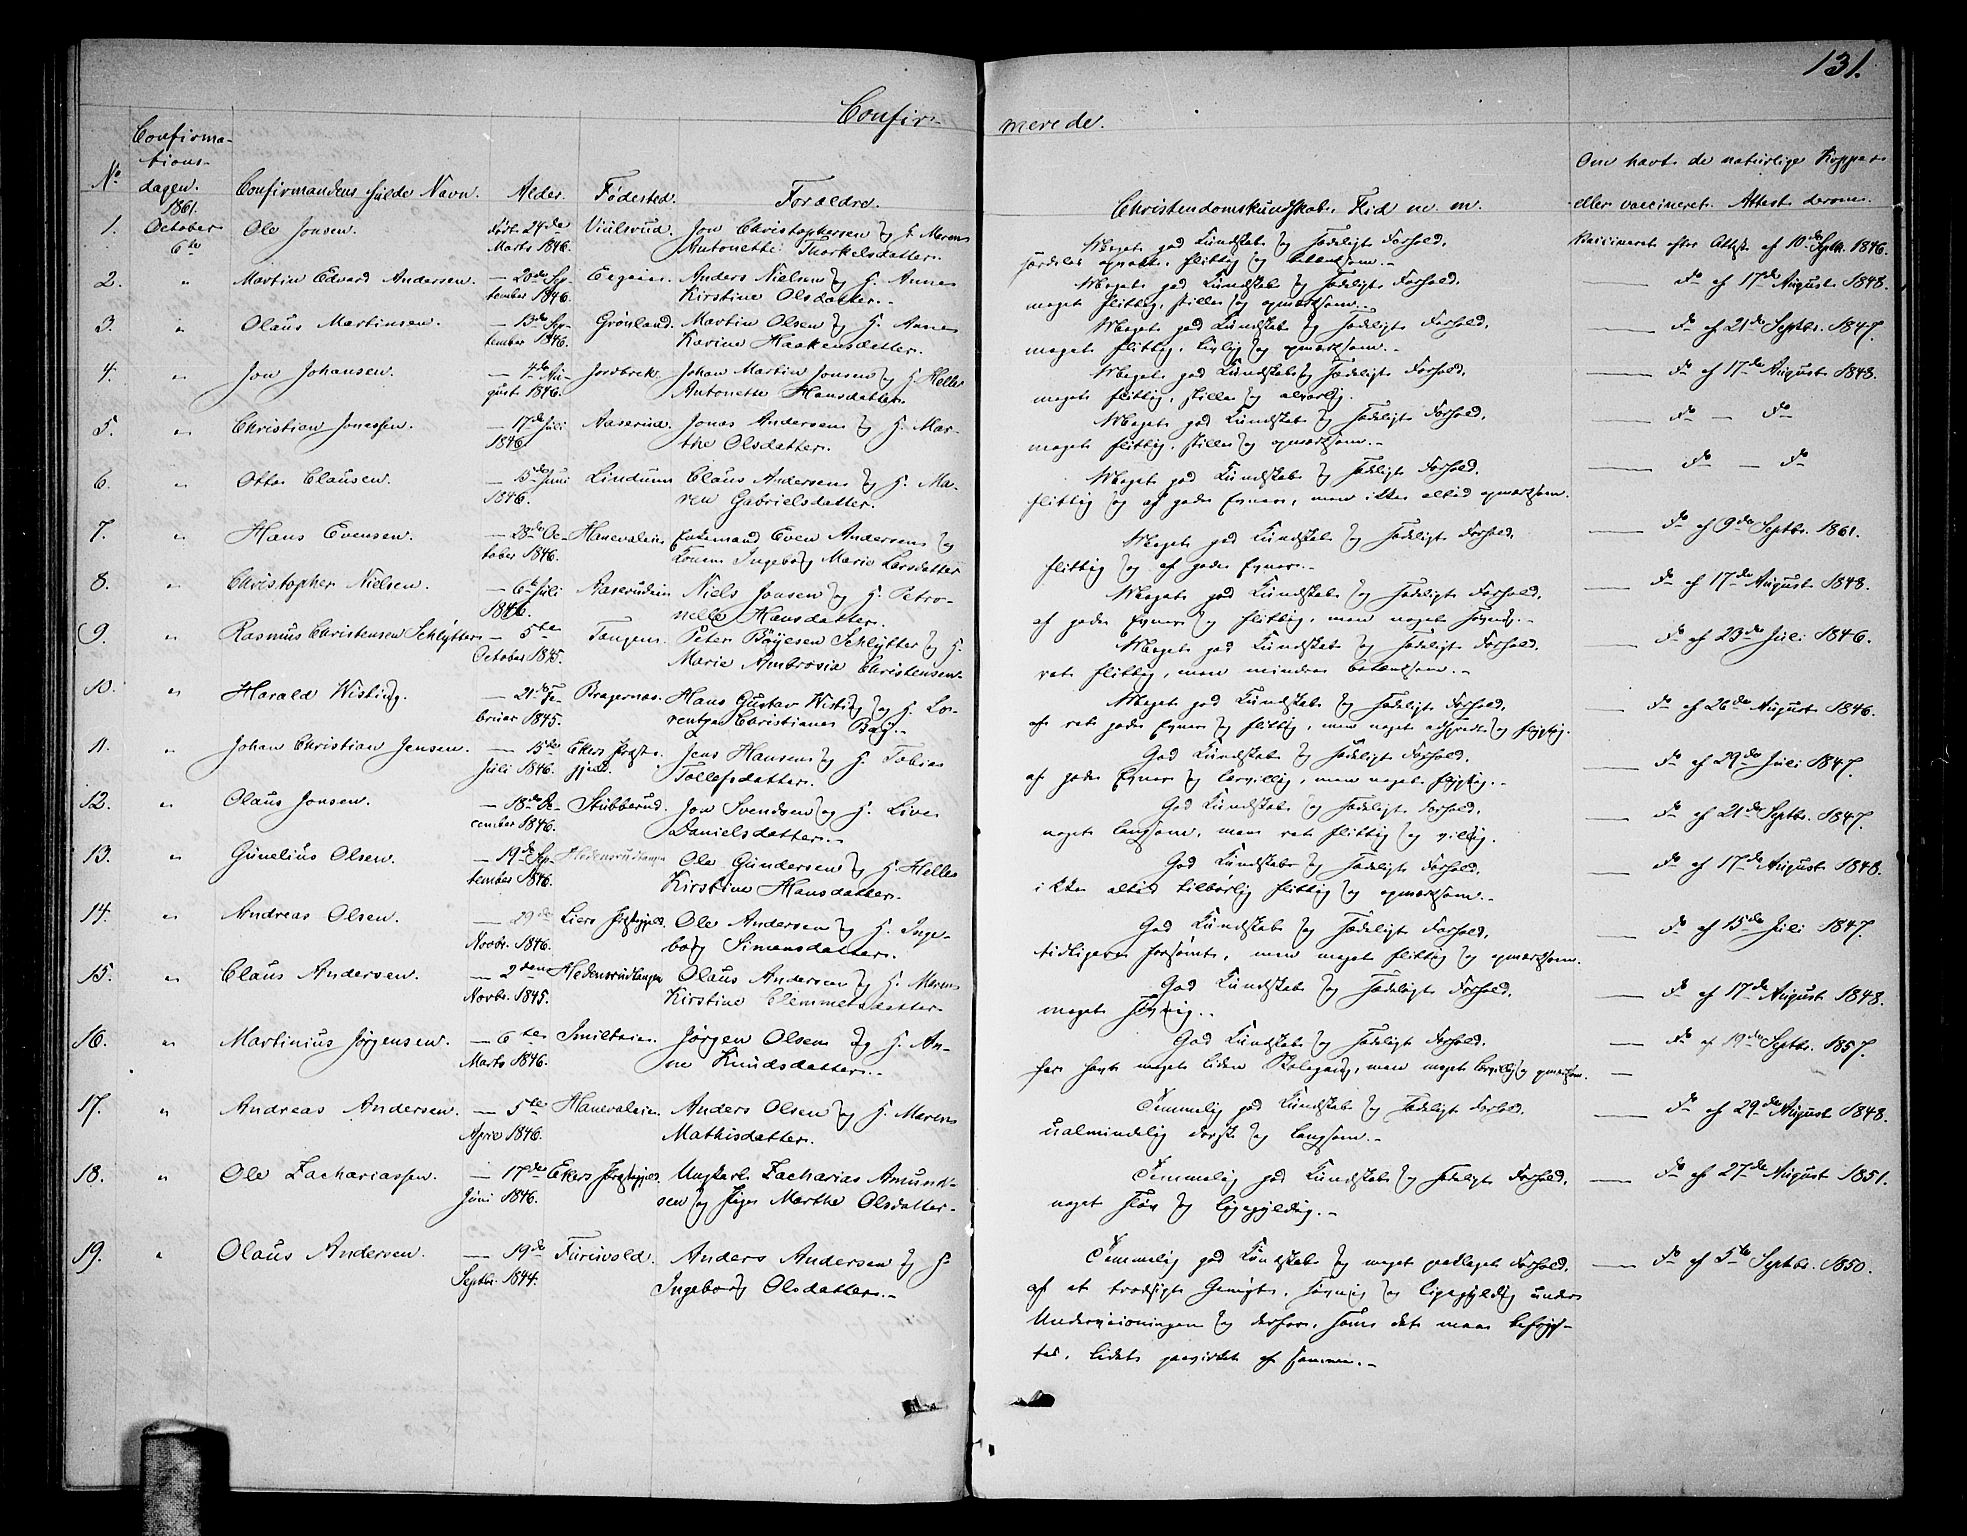 131.
Confir- merede.
No
Confirma-
tions-
dagen.
1861.
Confirmandens fulde Navn. Alder. Fødested. Forældre.
Christendomskundskab, Flid m. m.
Om havt de naturlige Kopper
eller vaccineret. Attest derom.
1. October Ole Jonsen. født 24de Viulsrud. Jon Christophersen og H. Maren Meget god Kundskab og sædeligt Forhold, Vaccineret efter Attest af 10de Septbr. 1846.
6te Marts 1846. Antonette Thorkelsdatter. særdeles opvakt, flittig og
2. " Martin Edvard Andersen. — 20de Sep- Eegeien. Anders Nielsen og H. Anne Meget god Kundskab og sædeligt Forhold, — Do af 17de August 1848.
tember 1846. Kirstine Olsdatter. meget flittig, stille og opmærksom.
3. " Olaus Martinsen. — 13de Sep- Grønland. Martin Olsen og H. Anne Meget god Kundskab og sædeligt Forhold, — Do af 21de Septbr. 1847.
tember 1846. Karine Haakensdatter. meget flittig, livlig og opmærksom.
4. " Jon Johansen. — 4de Au- Jordbrek. Johan Martin Jonsen og H. Helle Meget god Kundskab og sædeligt Forhold, — Do af 17de August 1848.
gust 1846. Antonette Hansdatter. meget flittig, stille og alvorlig.
5. " Christian Jonassen. — 17de Juli Aaserud. Jonas Andersen og H. Mar- Meget god Kundskab og sædeligt Forhold, — Do — Do
1846. the Olsdatter. meget flittig, stille og opmærksom.
6. " Otto Clausen. — 15de Juni Lindum Claus Andersen og H. Ma- Meget god Kundskab og sædeligt Forhold, — Do — Do
1846. ren Gabrielsdatter. flittig og af gode Evner, men ikke altid opmærksom.
7. " Hans Evensen. — 28de Oc- Hanevoleien Even Andersen og Meget god Kundskab og sædeligt Forhold, — Do af 9de Septbr. 1861.
tober 1846. Konen Ingeborg Marie Larsdatter flittig og af gode Evner.
8. " Christopher Nielsen. — 6te Juli Aaserudeien Niels Jonsen og H. Petro- Meget god Kundskab og sædeligt Forhold, — Do af 17de August 1848.
1846. nelle Hansdatter. af gode Evner og flittig, men noget
9. " Rasmus Christensen Schlytter — 5te Tangen. Peter Bøyesen Schlytter og H. Meget god Kundskab og sædeligt Forhold, — Do af 23de Juli 1846.
October 1845. Marie Ambrosia Christensen. ret flittig, men mindre
10. " Harald Wisting. — 21de Fe- Bragernæs. Hans Gustav Wisting og H. Lo- Meget god Kundskab og sædeligt Forhold, — Do af 26de August 1846.
bruar 1845. rentze Christiane Bay. af ret gode Evner og flittig, men noget adspredt og flygtig.
11. " Johan Christian Jensen. — 15de Ekers Præste- Jens Hansen og H. Tobine God Kundskab og sædeligt Forhold, — Do af 29de Juli 1847.
Juli 1846. gjeld. Tollefsdatter. af gode Evner og lærvillig, men noget flygtig.
12. " Olaus Jonsen. — 18de De- Stubberud. Jon Svendsen og H. Live God Kundskab og sædeligt Forhold, — Do af 21de Septbr. 1847.
cember 1846. Danielsdatter. noget langsom, men ret flittig og villig.
13. " Gunelius Olsen. — 19de Sep- Hedensrudtangen Ole Gundersen og H. Helle God Kundskab og sædeligt Forhold, — Do af 17de August 1848.
tember 1846. Kirstine Hansdatter. ikke altid tilbørlig flittig og opmærksom.
14. " Andreas Olsen. — 29de Liers Præstegjeld. Ole Andersen og H. Inge- God Kundskab og sædeligt Forhold, — Do af 15de Juli 1847.
Novbr. 1846. borg Simensdatter. tidligere forsømt, men meget flittig og opmærksom.
15. " Claus Andersen. — 2den Hedensrudtangen Olaus Andersen og H. Maren God Kundskab og sædeligt Forhold, — Do af 17de August 1848.
Novbr. 1845. Kirstine Clemmetsdatter. meget
16. " Martinius Jørgensen. — 6te Smilteien. Jørgen Olsen og H. An- God Kundskab og sædeligt Forhold, — Do af 19de Septbr. 1857.
Marts 1846. ne Knudsdatter. har havt meget liden Skolegang, men meget lærvillig og opmærksom.
17. " Andreas Andersen. — 5te Hanevoleien. Anders Olsen og H. Maren Temmelig god Kundskab og sædeligt Forhold, — Do af 29de August 1848.
April 1846. Mathisdatter. ualmindelig dorsk og langsom.
18. " Ole Zachariassen. — 17de Ekers Præstegjeld. Ungkarl Zacharias Amund- Temmelig god Kundskab og sædeligt Forhold, — Do af 27de August 1851.
Juni 1846. sen og Pige Marthe Olsdatter. noget sløv og ligegyldig.
19. " Olaus Andersen. — 19de Furuvold. Anders Andersen og H. Temmelig god Kundskab og meget Forhold, — Do af 5te Septbr. 1850.
Septbr. 1844. Ingeborg Olsdatter. af et trodsigt Gemyt, og ligegyldig under
Underviisningen og derfor, som det maa befryg-
tes, lidet paavirket af samme.